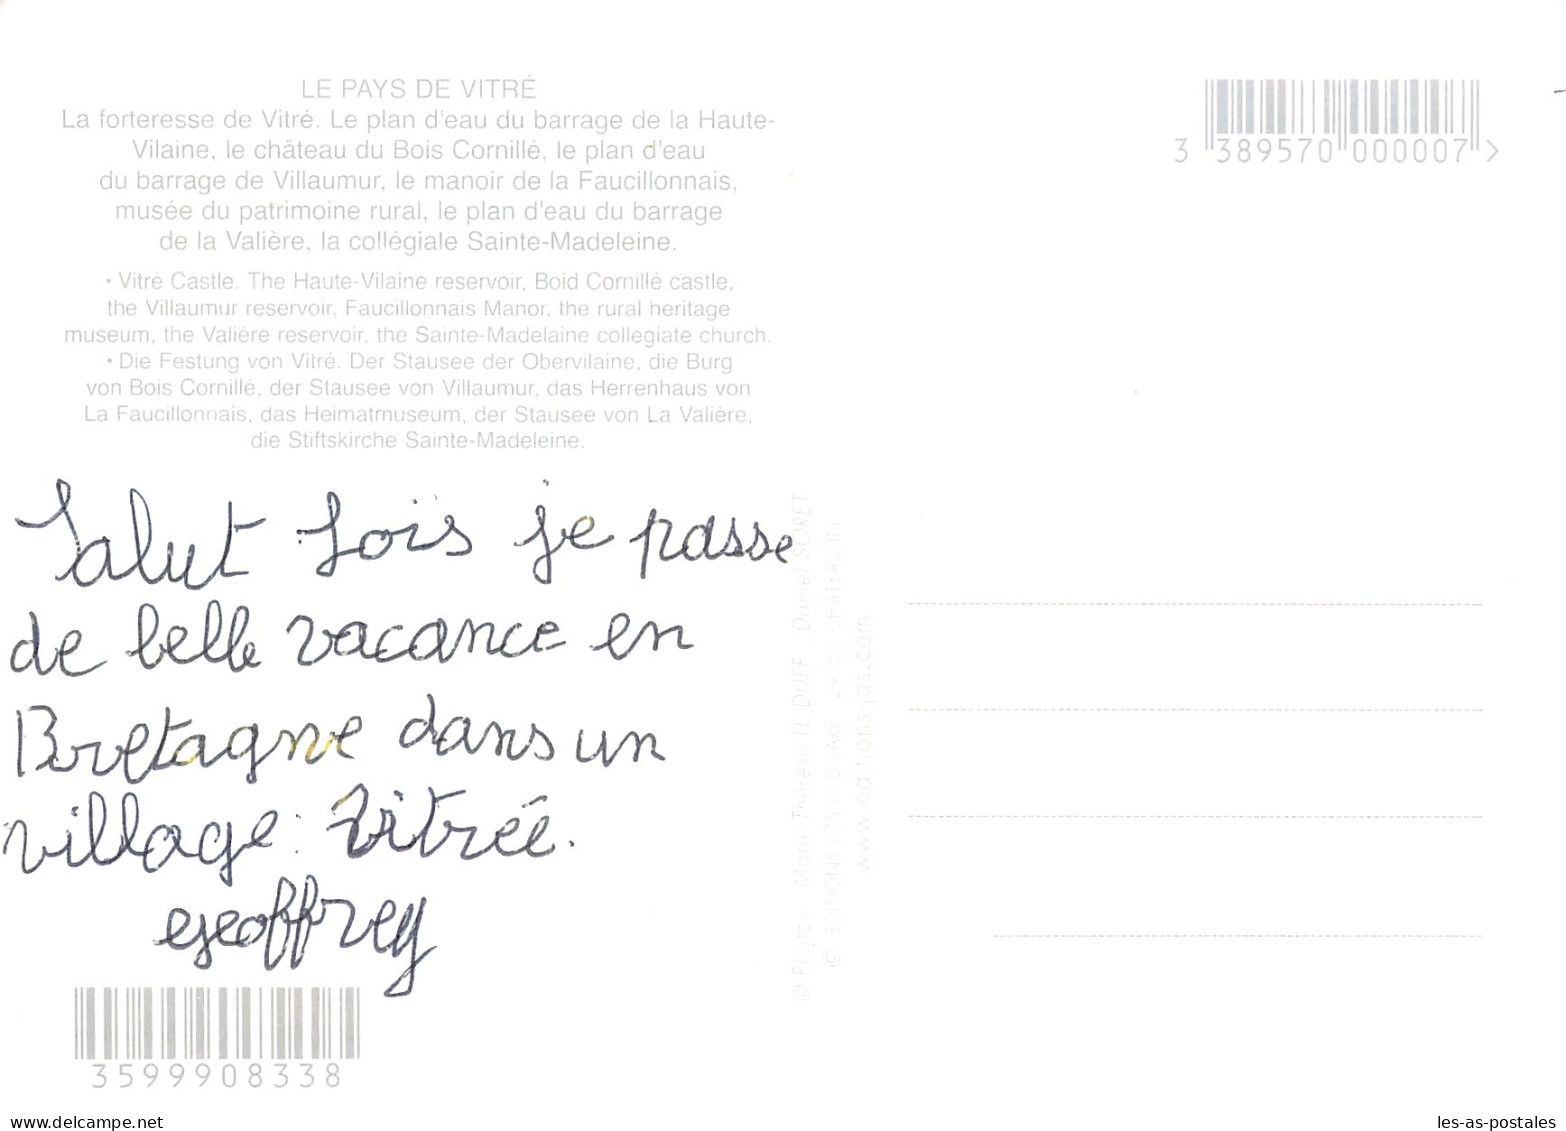 LE PAYS DE VITRÉ
La forteresse de Vitré. Le plan d'eau du barrage de la Haute-
Vilaine, le château du Bois Cornillé, le plan d'eau
du barrage de Villaumur, le manoir de la Faucillonnais,
musée du patrimoine rural, le plan d'eau du barrage
de la Valière, la collégiale Sainte-Madeleine.
• Vitré Castle. The Haute-Vilaine reservoir, Boid Cornillé castle,
the Villaumur reservoir, Faucillonnais Manor, the rural heritage
museum, the Valière reservoir, the Sainte-Madelaine collegiate church.
• Die Festung von Vitré. Der Stausee der Obervilaine, die Burg
von Bois Cornillé, der Stausee von Villaumur, das Herrenhaus von
La Faucillonnais, das Heimatmuseum, der Stausee von La Valière,
die Stiftskirche Sainte-Madeleine.
Salut Loïs je passe
de belle vacance en
Bretagne dans un
village : Vitrée.
Geoffrey
3599908338
© Photos Marie-Thérèse LE DUFF Daniel SORET
© EDITIONS JOS LE DOARÉ 29150 CHATEAULIN
www.editions-jos.com
3 389570 000007 >
www.delcampe.net
les-as-postales